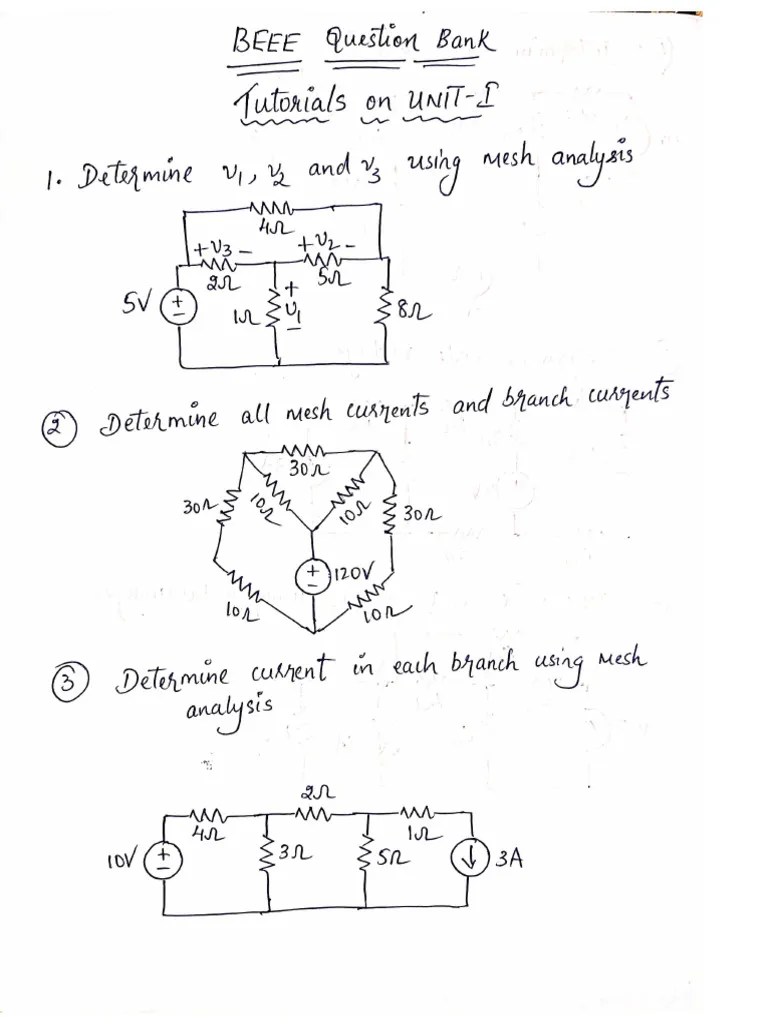 BEEE Question Bank
Tutorials on UNIT-I
1. Determine v1, v2 and v3 using mesh analysis
4Ω
+ v3 -
+ v2 -
2Ω
5Ω
5V
+
-
1Ω
+
v1
-
8Ω
2 Determine all mesh currents and branch currents
30Ω
30Ω
10Ω
10Ω
30Ω
+
-
120V
10Ω
10Ω
3 Determine current in each branch using mesh
analysis
2Ω
4Ω
1Ω
10V
+
-
3Ω
5Ω
3A